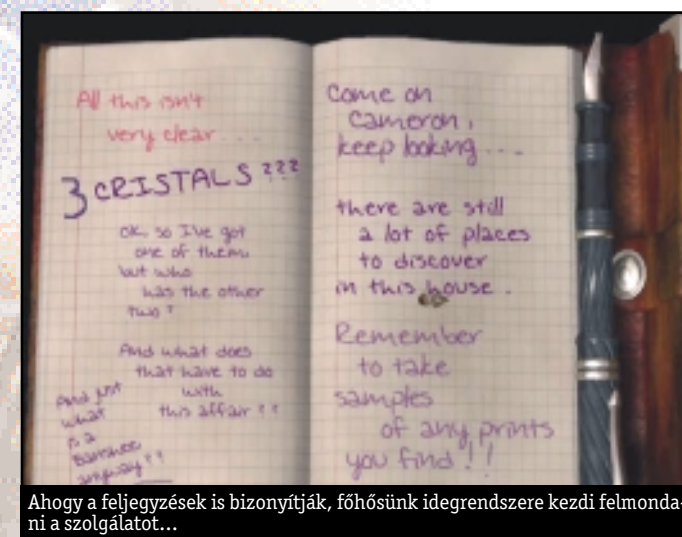 All this isn't
very clear...
3 CRISTALS ???
OK, so I've got
one of them.
but who
has the other
two ?
And what does
that have to do
with
this affair ? ?
And just
what
is a
banshee
anyway ? ?
Come on
Cameron,
keep looking ...
there are still
a lot of places
to discover
in this house.
Remember
to take
samples
of any prints
you find ! !
Ahogy a feljegyzések is bizonyítják, főhősünk idegrendszere kezdi felmonda-
ni a szolgálatot...